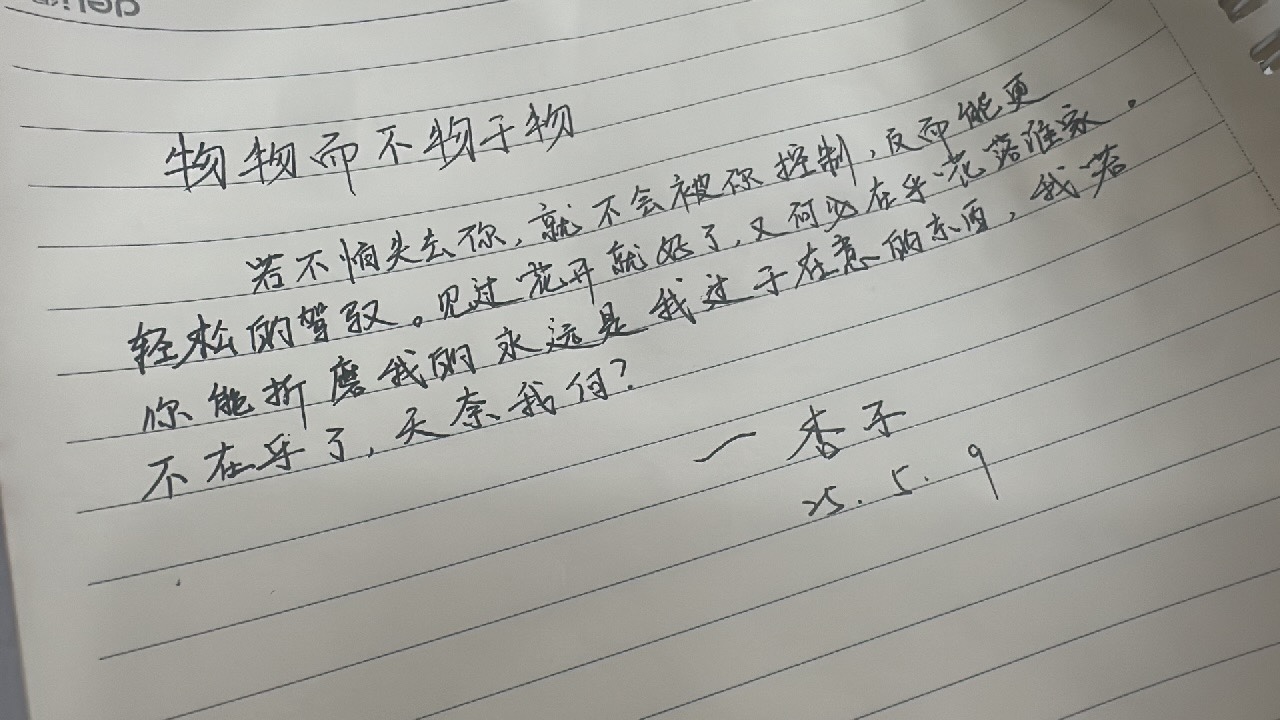 deli
物物而不物于物
若不怕失去你,就不会被你控制,反而能更
轻松的驾驭。见过花开就好了,又何必在乎花落谁家。
你能折磨我的永远是我过于在意的东西,我若
不在乎了,天奈我何?
一杏子
25.5.9